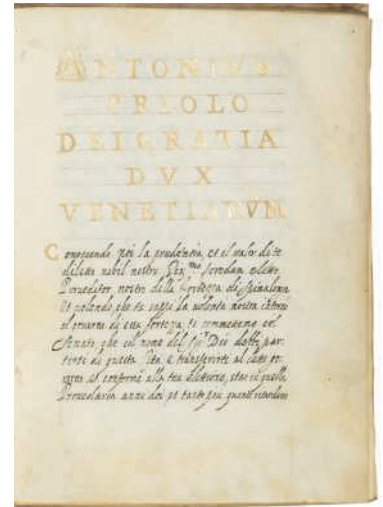 ANTONIVS
PRIOLO
DEI GRATIA
DVX
VENETIARVM
Conoscendo Noi la prudentia, et il valor di te
diletto nobil nostro Loredan eletto
Proveditor nostro della Fortezza di Spinalonga
et volendo che tu sappi la volontà nostra intorno
il governo di essa fortezza, te commettemo col
Senato che col nome del Sp.r Dio debbi par
tirte di questa Città, e transferirte al detto
conforme alla tua elettione, star in quella
anni doi et tanto più quanto